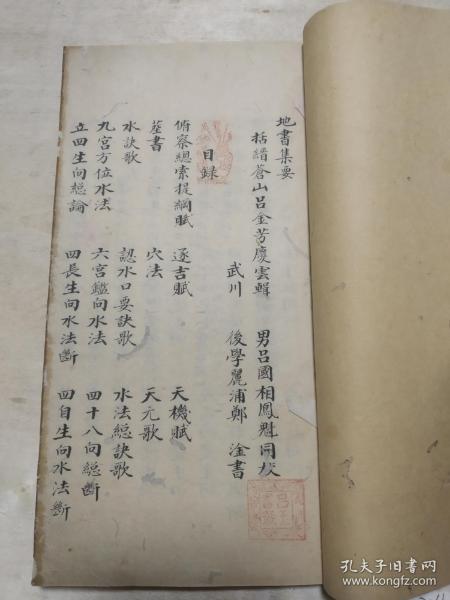 地書集要
括蒼縉山吕金芳慶雲輯 男吕國相鳳魁同校
武川 後學麗浦鄭 淦書
目録
俯察總索提綱賦 逐吉賦 天機賦
葬書 穴法 天元歌
水訣歌 認水口要訣歌 水法緫訣歌
九宮方位水法 六宮鑑向水法 四十八向緫斷
立四生向緫論 四長生向水法斷 四自生向水法斷
孔夫子旧书网
www.kongfz.com